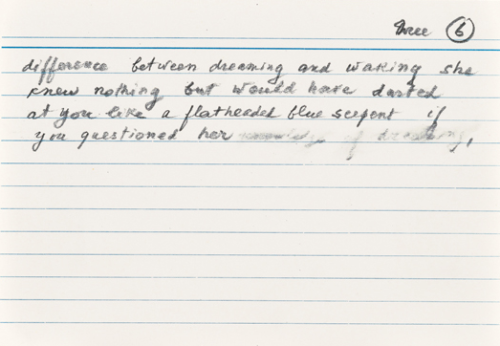 Three 6
difference between dreaming and waking she
knew nothing but would have darted
at you like a flatheaded blue serpent if
you questioned her